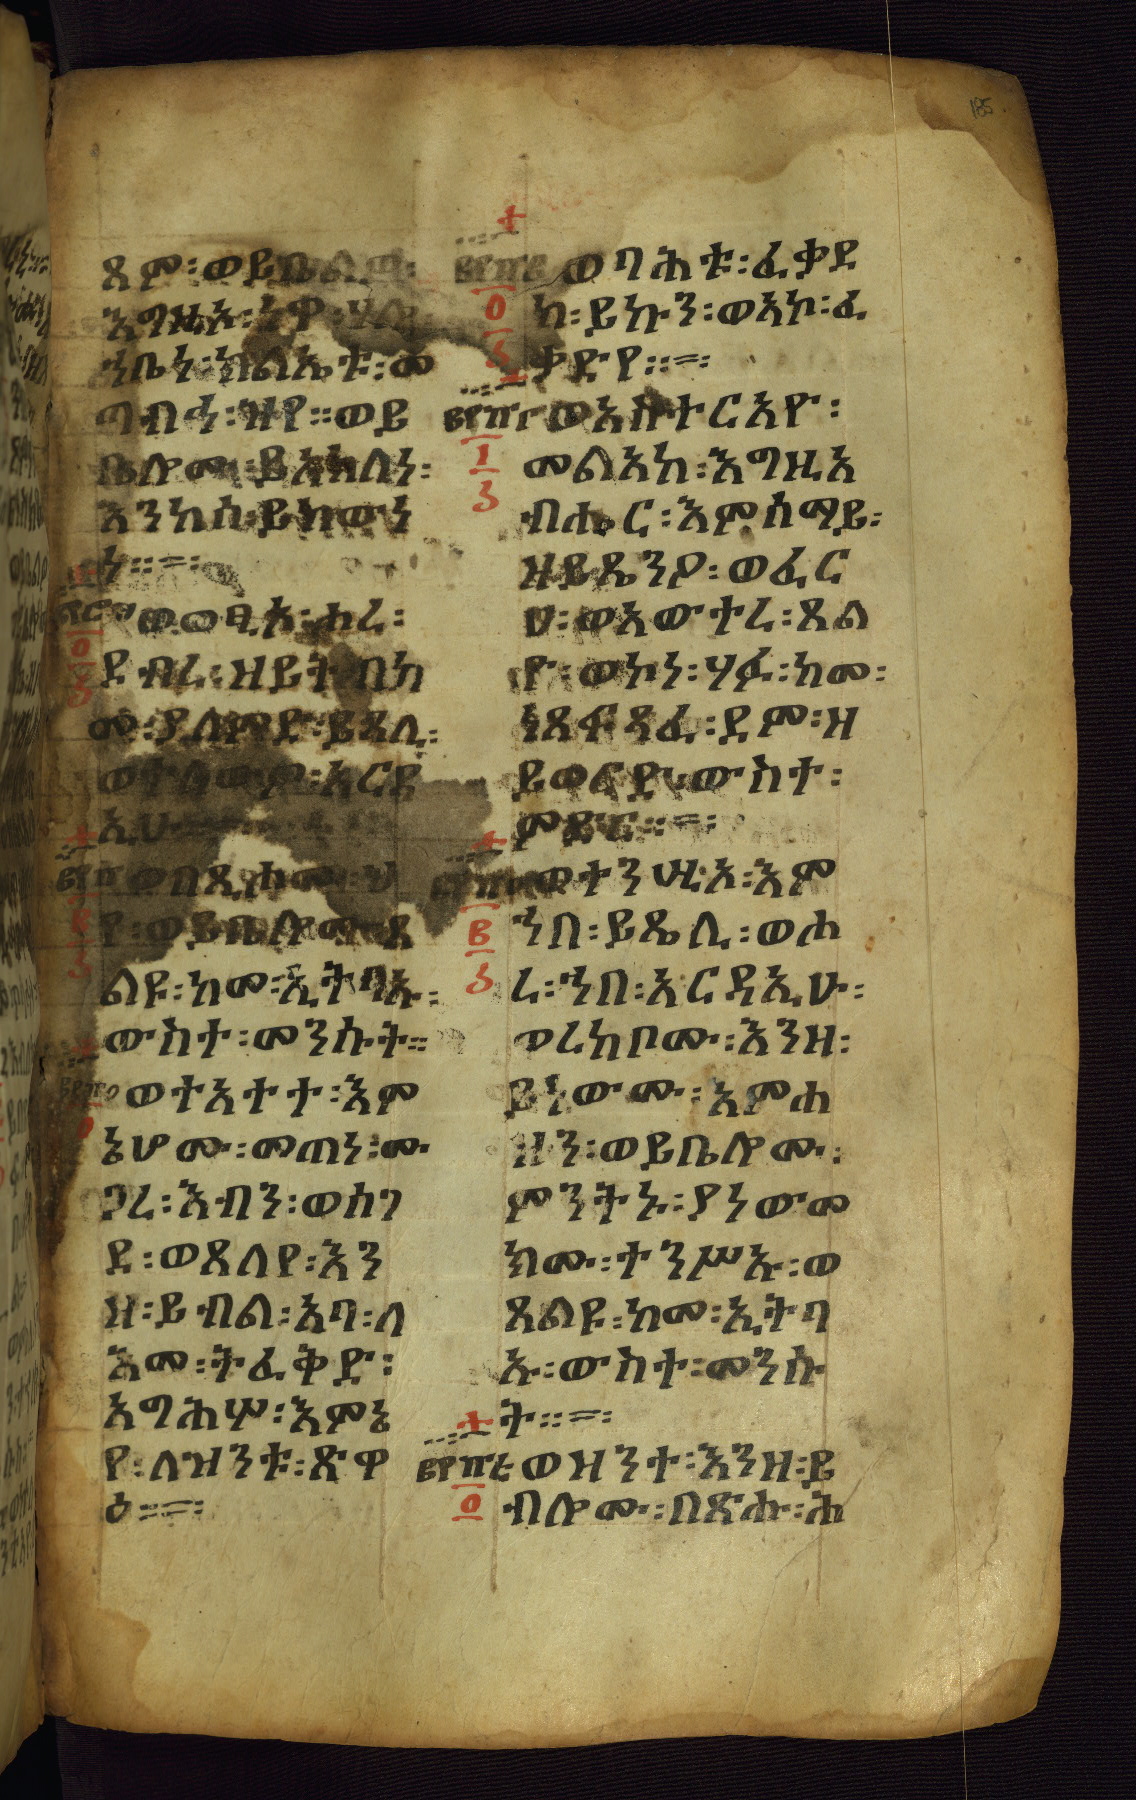 185
ጸም፡ወይቤልዎ፡
እግዚኦ፡ነዋ፡ሃለዉ፡
ኀቤነ፡ክልኤቱ፡መ
ጣብሓ፡ዝየ፡፡ወይ
ቤሎሙ፡ይአክለነ፡
እንከሰ፡ይከውነ
ነ፡፡
ወወፂኦ፡ሐረ፡
ደብረ፡ዘይት፡በከ
መ፡ያለምድ፡ይጸሊ፡
ወተለውዎ፡አርዳ
ኢሁ፡
ወበጺሖሙ፡ህ
የ፡ወይቤሎሙ፡ጸ
ልዩ፡ከመ፡ኢትባኡ፡
ውስተ፡መንሱት፡፡
ወተአተተ፡እም
ኔሆሙ፡መጠነ፡ሙ
ጋረ፡እብን፡ወሰገ
ደ፡ወጸለየ፡እን
ዘ፡ይብል፡አባ፡ለ
እመ፡ትፈቅድ፡
አግሕሦ፡እምኔ
የ፡ለዝንቱ፡ጽዋ
ዕ፡፡
ወባሕቱ፡ፈቃደ
ከ፡ይኩን፡ወአኮ፡ፈ
ቃድየ፡፡
ወአስተርአዮ፡
መልአከ፡እግዚአ
ብሔር፡እምሰማይ፡
ዘይጼንዖ፡ወፈር
ሀ፡ወአውተረ፡ጸል
ዮ፡ወኮነ፡ሃፉ፡ከመ፡
ነጸፍጻፈ፡ደም፡ዘ
ይወርድ፡ውስተ፡
ምድር፡፡
ወተንሢኦ፡እም
ኀበ፡ይጼሊ፡ወሐ
ረ፡ኀበ፡አርዳኢሁ፡
ወረከቦሙ፡እንዘ፡
ይነውሙ፡እምሐ
ዘን፡ወይቤሎሙ፡
ምንትኑ፡ያነውመ
ክሙ፡ተንሥኡ፡ወ
ጸልዩ፡ከመ፡ኢትባ
ኡ፡ውስተ፡መንሱ
ት፡፡
ወዝንተ፡እንዘ፡ይ
ብሎሙ፡በጽሑ፡ሕ